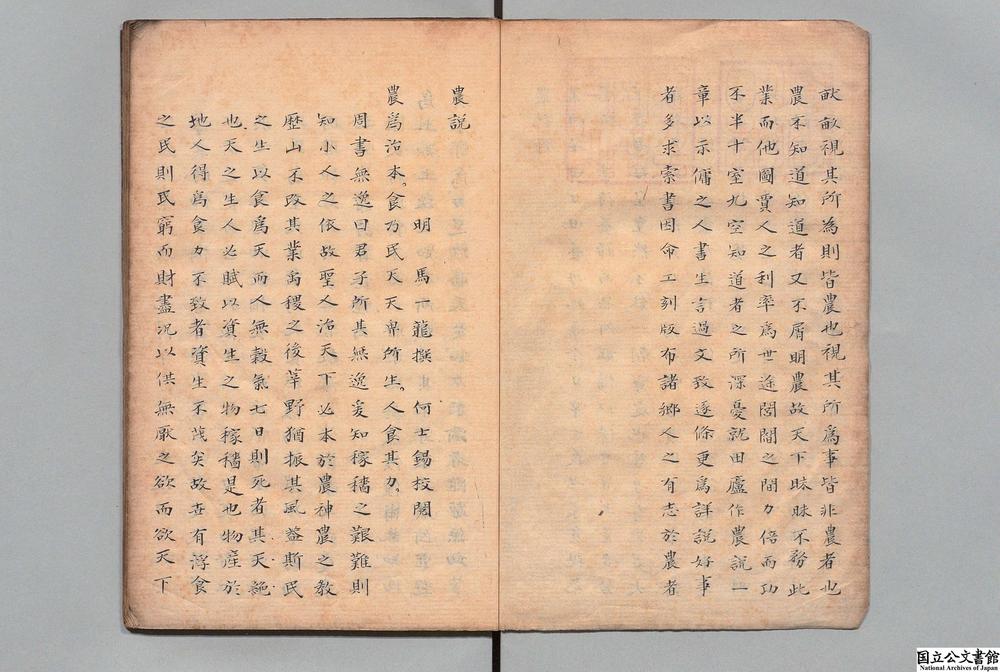 畝畝視其所為則皆農也視其所為事皆非農者也
農不知道知道者又不屑明農故天下昧昧不務此
業而他圖賈人之利率為世途閭閻之間力倍而功
不半十室九空知道者之所深憂就田廬作農說一
章以示傭之人書生言過文致逐條更為詳說好事
者多求索書因命工刻版布諸鄉人之有志於農者
農說
明 馬一龍撰 何士錫校閱
農為治本食乃民天天畀所生人食其力
周書無逸曰君子所其無逸爰知稼穡之艱難則
知小人之依故聖人治天下必本於農神農之教
歷山不改其業禹稷之後莘野猶振其風蓋斯民
之生以食為天而人無穀氣七日則死者其天絕
也天之生人必賦以資生之物稼穡是也物產於
地人得為食力不致者資生不茂矣故世有浮食
之民則民窮而財盡況以供無厭之欲而欲天下
国立公文書館
National Archives of Japan